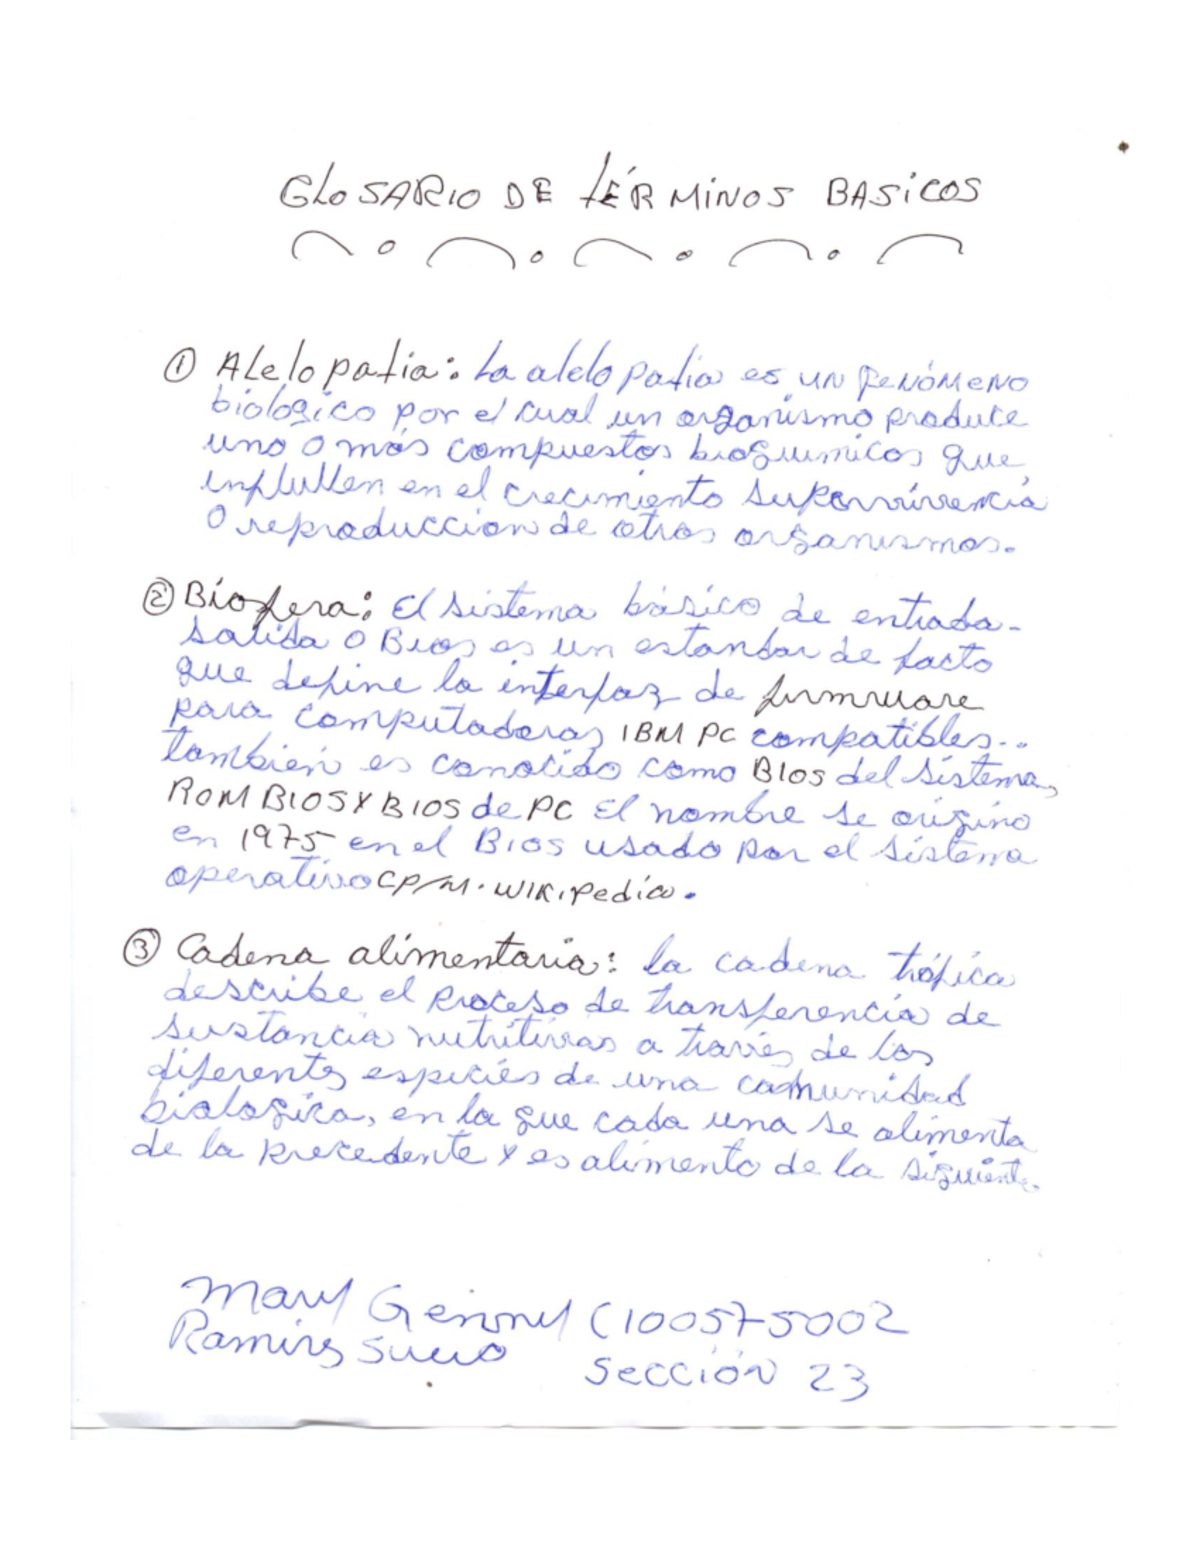 GLOSARIO DE TÉRMINOS BASICOS
① Alelopatia: La alelopatia es un fenómeno
biologico por el cual un organismo produce
uno o más compuestos bioquimicos que
influllen en el crecimiento supervivencia
o reproduccion de otros organismos.
② Biosfera: El sistema básico de entrada-
salida o Bios es un estandar de facto
que define la interfaz de firmware
para computadoras IBM PC compatibles...
también es conocido como BIOS del sistema,
ROM BIOS Y BIOS de PC El nombre se origino
en 1975 en el Bios usado por el sistema
operativo CP/M. WIKIPedia.
③ Cadena alimentaria: la cadena trófica
describe el proceso de transferencia de
sustancia nutritivas a través de las
diferentes especiés de una comunidad
biologica, en la que cada una se alimenta
de la precedente y es alimento de la siguiente.
Mary Genny (100575002
Ramirez Suero
Sección 23